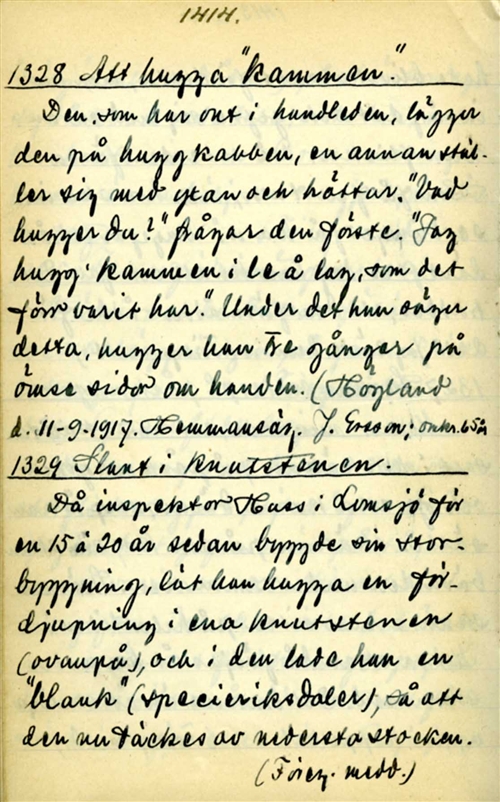 1414.
1328 Att hugga "kammen".
Den, som har ont i handleden, lägger
den på huggkabben, en annan stäl-
ler sig med yxan och håttar. "Vad
hugger du?" frågar den förste. "Jag
hugg' kammen i le å lag, som det
förr varit har." Under det han säger
detta, hugger han tre gånger på
ömse sidor om handen. (Högland
d. 11-9-1917. Hemmansäg. J. Ersson; omkr. 65 år
1329 Slant i knutstenen.
Då inspektor Haes i Lomsjö för
en 15 à 20 år sedan byggde sin stor-
byggning, lät han hugga en för-
djupning i ena knutstenen
(ovanpå), och i den lade han en
"blank" (specieriksdaler), så att
den nu täckes av nedersta stocken.
(Föreg. medd.)